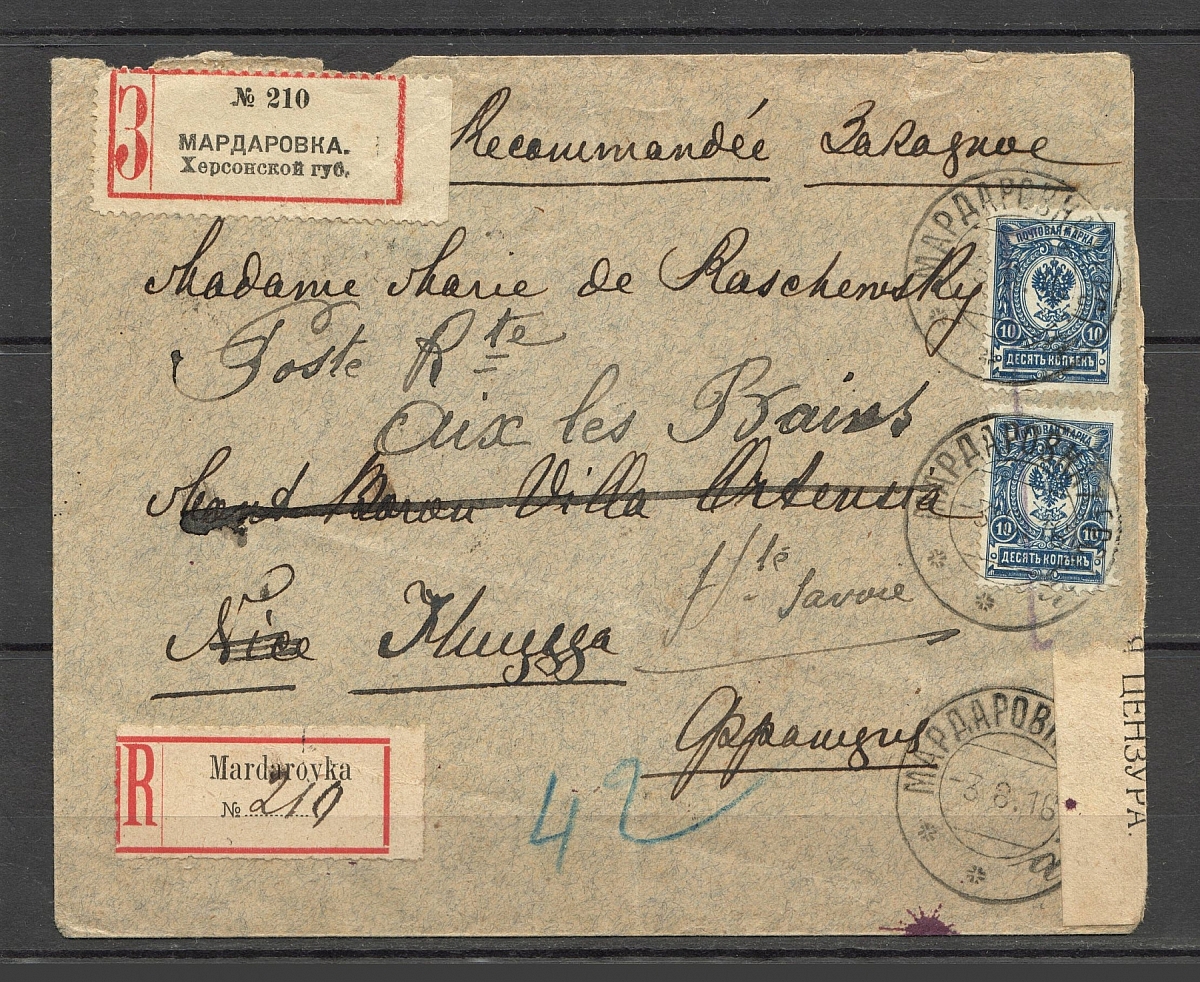 З
№ 210
МАРДАРОВКА.
Херсонской губ.
Recommandée Заказное
Madame Marie de Raschewsky
Poste Rte
Aix les Bains
Mont Boron Villa Ortensia
Hte Savoie
Nice Ницца
Франция
R
Mardarovka
№ 210
42
ПОЧТОВАЯ МАРКА
10 10
ДЕСЯТЬ КОПѢЕКЪ
ПОЧТОВАЯ МАРКА
10 10
ДЕСЯТЬ КОПѢЕКЪ
МАРДАРОВКА
МАРДАРОВКА
МАРДАРОВКА
-3.8.16
а
ЦЕНЗУРА